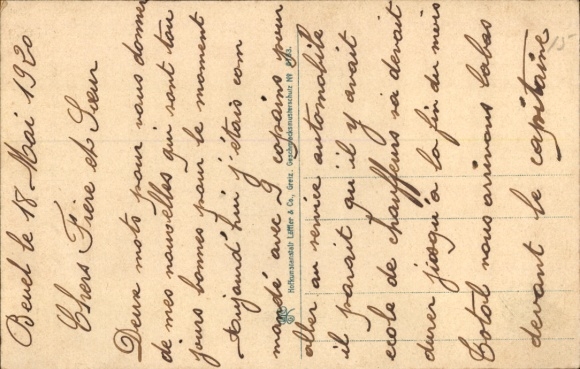 Beuel le 18 Mai 1920
Chers Frère et Sœur
Deux mots pour vous donner
de mes nouvelles qui sont tou
jours bonnes pour le moment
Aujourd'hui j'étais com
mandé avec 9 copains pour
aller au service automobile
il parait qu'il y avait
ecole de chauffeurs sa devait
durer jusqu'à la fin du mois
Total nous arrivons labas
devant le capitaine
Hofkunstanstalt Löffler & Co., Greiz. Geschmacksmusterschutz No
15